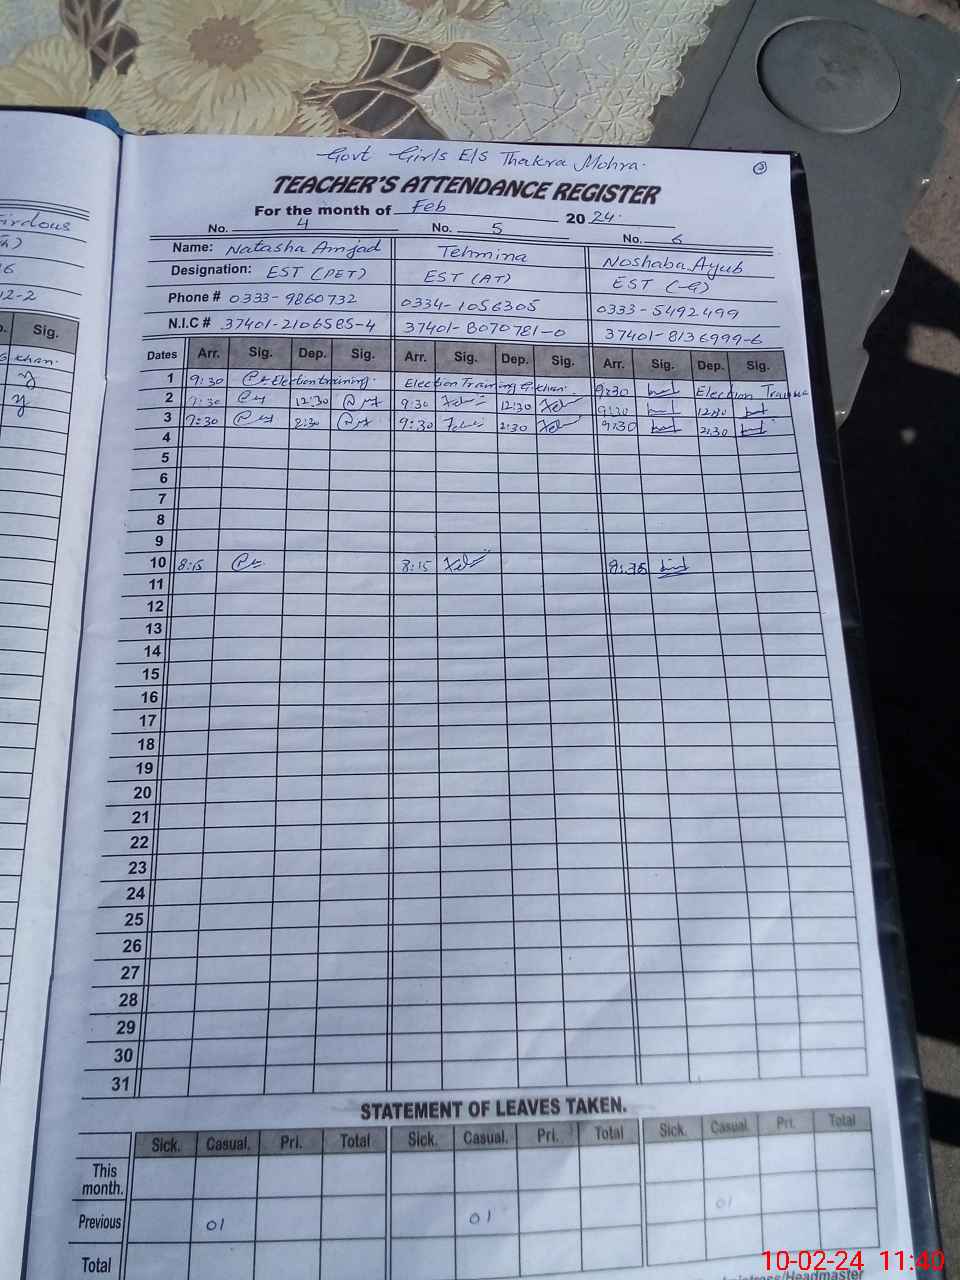 Govt Girls E/S Thakra Mohra.
3
TEACHER'S ATTENDANCE REGISTER
For the month of Feb 2024.
No. 4 No. 5 No. 6
Name: Natasha Amjad Tehmina Noshaba Ayub
Designation: EST (PET) EST (AT) EST
Phone # 0333-9860732 0334-1056305 0333-5492499
N.I.C # 37401-2106585-4 37401-8070781-0 37401-8136999-6
Dates Arr. Sig. Dep. Sig. Arr. Sig. Dep. Sig. Arr. Sig. Dep. Sig.
1 9:30 Election training. Election Training G.khan. 9:30 Election
2 9:30 12:30 9:30 12:30 9:30 12:30
3 9:30 2:30 9:30 2:30 9:30 2:30
4
5
6
7
8
9
10 8:15 8:15 8:35
11
12
13
14
15
16
17
18
19
20
21
22
23
24
25
26
27
28
29
30
31
STATEMENT OF LEAVES TAKEN.
Sick. Casual. Pri. Total Sick. Casual. Pri. Total Sick. Casual. Pri. Total
This month.
Previous 01 01 01
Total
Sig.
khan.
12-2
10-02-24 11:40
/Headmaster